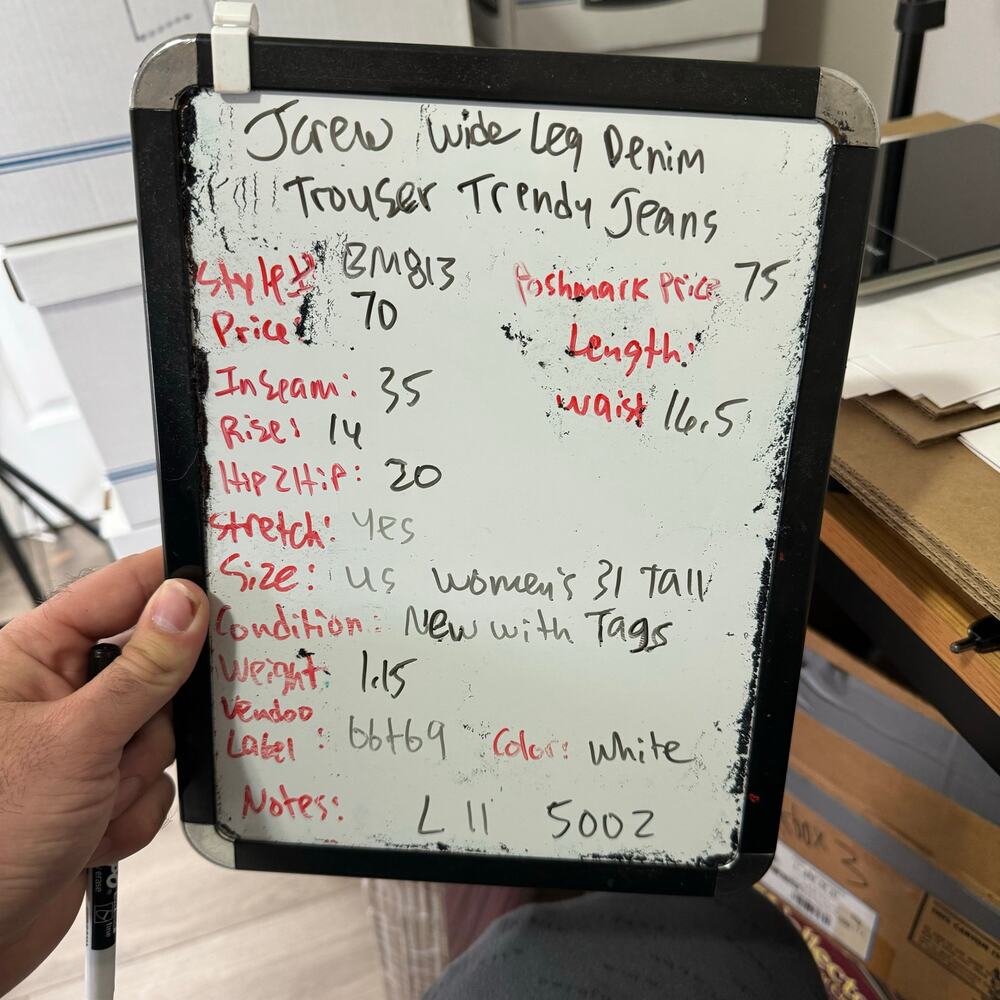 Jcrew Wide Leg Denim
Trouser Trendy Jeans
Style#: BM813
Poshmark Price 75
Price: 70
Length:
Inseam: 35
waist 16.5
Rise: 14
Hip2Hip: 20
Stretch: yes
Size: US Women's 31 Tall
Condition: New with Tags
Weight: 1.15
Vendoo
Label: bbtb9
Color: white
Notes: L 11 5002
box 3
erase